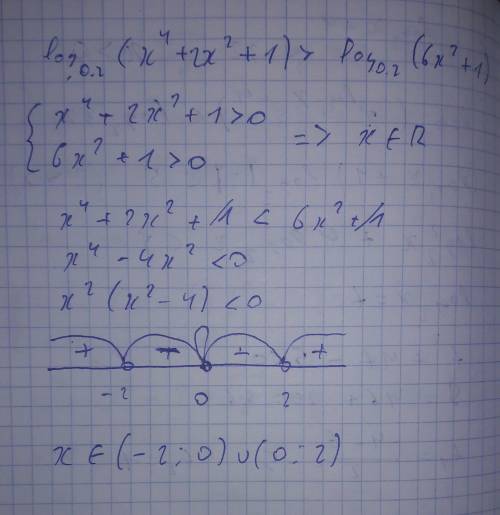 log₀.₂ (x⁴+2x²+1) > log₀.₂ (6x²+1)
{ x⁴ + 2x² + 1 > 0
{ 6x² + 1 > 0 => x ∈ R
x⁴ + 2x² + 1 < 6x² + 1
x⁴ - 4x² < 0
x² (x² - 4) < 0
+ - - +
-2 0 2
x ∈ (-2; 0) ∪ (0; 2)